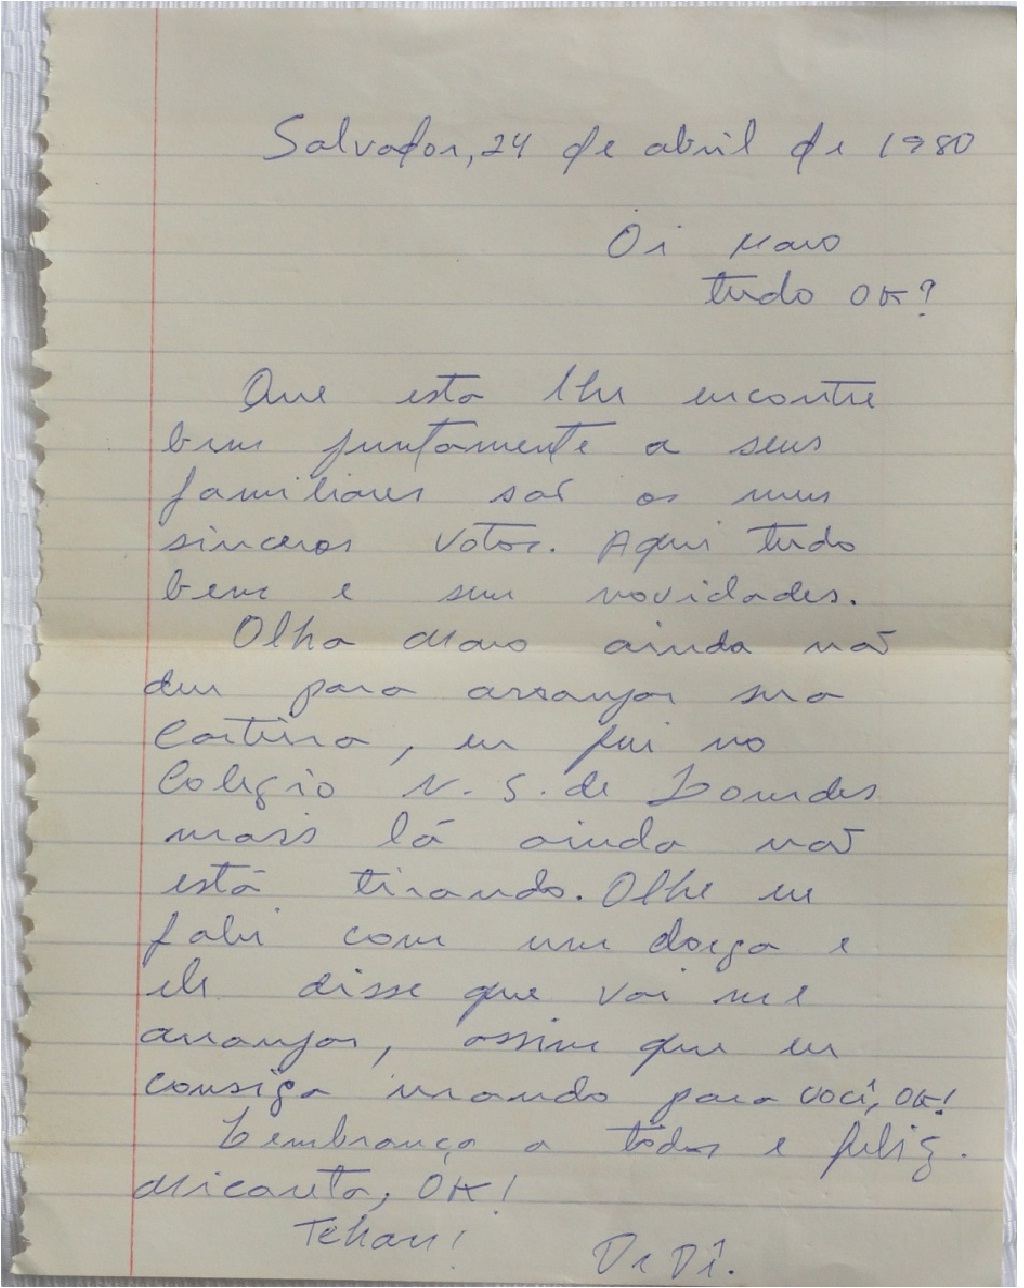 Salvador, 24 de abril de 1980
Oi Maro
tudo OK?
Que esta lhe encontre
bem juntamente a seus
familiares são os meus
sinceros votos. Aqui tudo
bem e sem novidades.
Olha Maro ainda não
deu para arranjar sua
Carteira, eu fui no
Colegio N. S. de Lourdes
mais lá ainda não
está tirando. Olhe eu
falei com um colega e
ele disse que vai me
arranjar, assim que eu
consiga mando para você, OK!
Lembrança a todos e feliz.
Micareta, OK!
Tchau!
De Di.